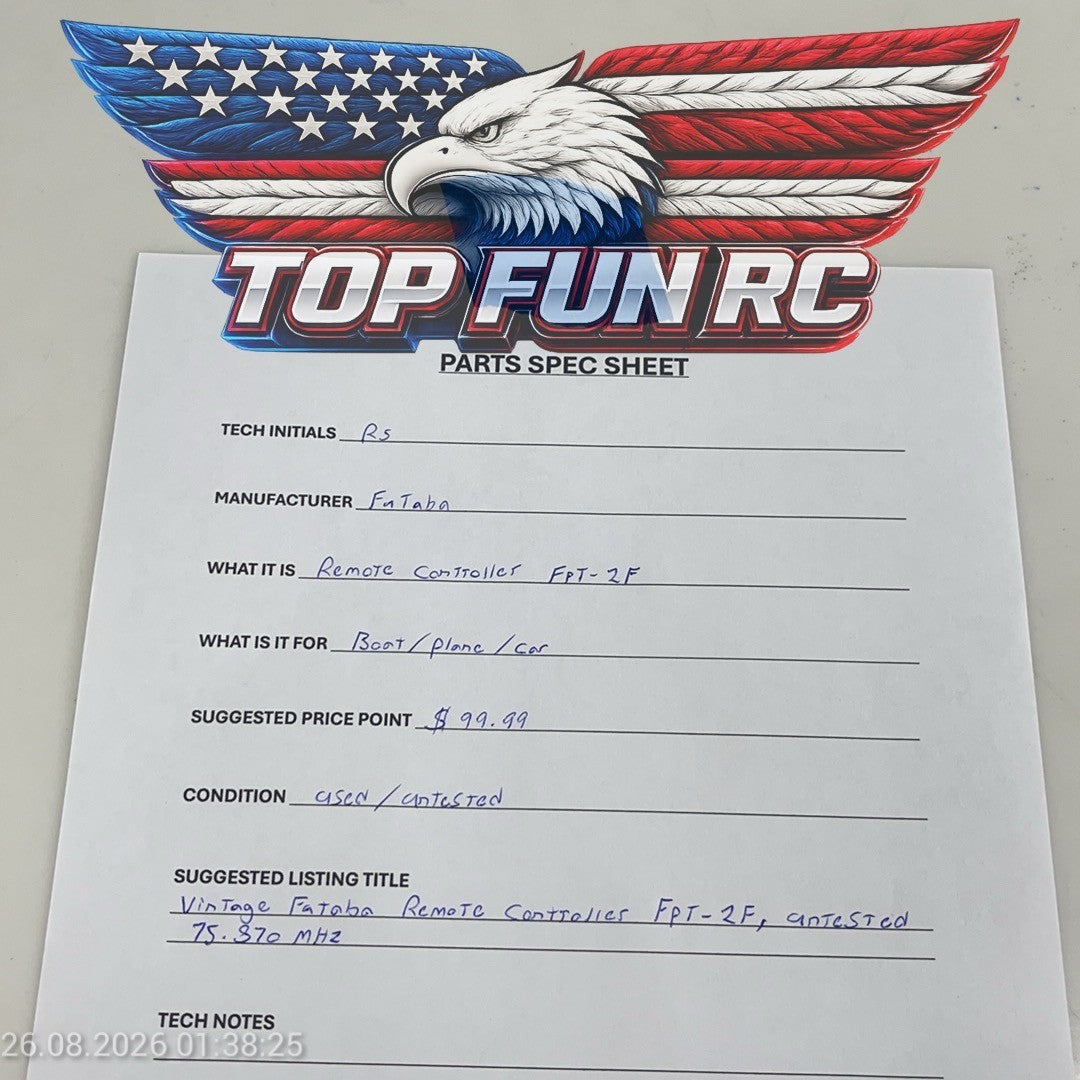 TOP FUN RC
PARTS SPEC SHEET
TECH INITIALS RS
MANUFACTURER FuTaba
WHAT IT IS Remote Controller FPT-2F
WHAT IS IT FOR Boat/plane/car
SUGGESTED PRICE POINT $99.99
CONDITION used/untested
SUGGESTED LISTING TITLE
Vintage Futaba Remote Controller FPT-2F, untested
75.870 MHz
TECH NOTES
26.08.2026 01:38:25